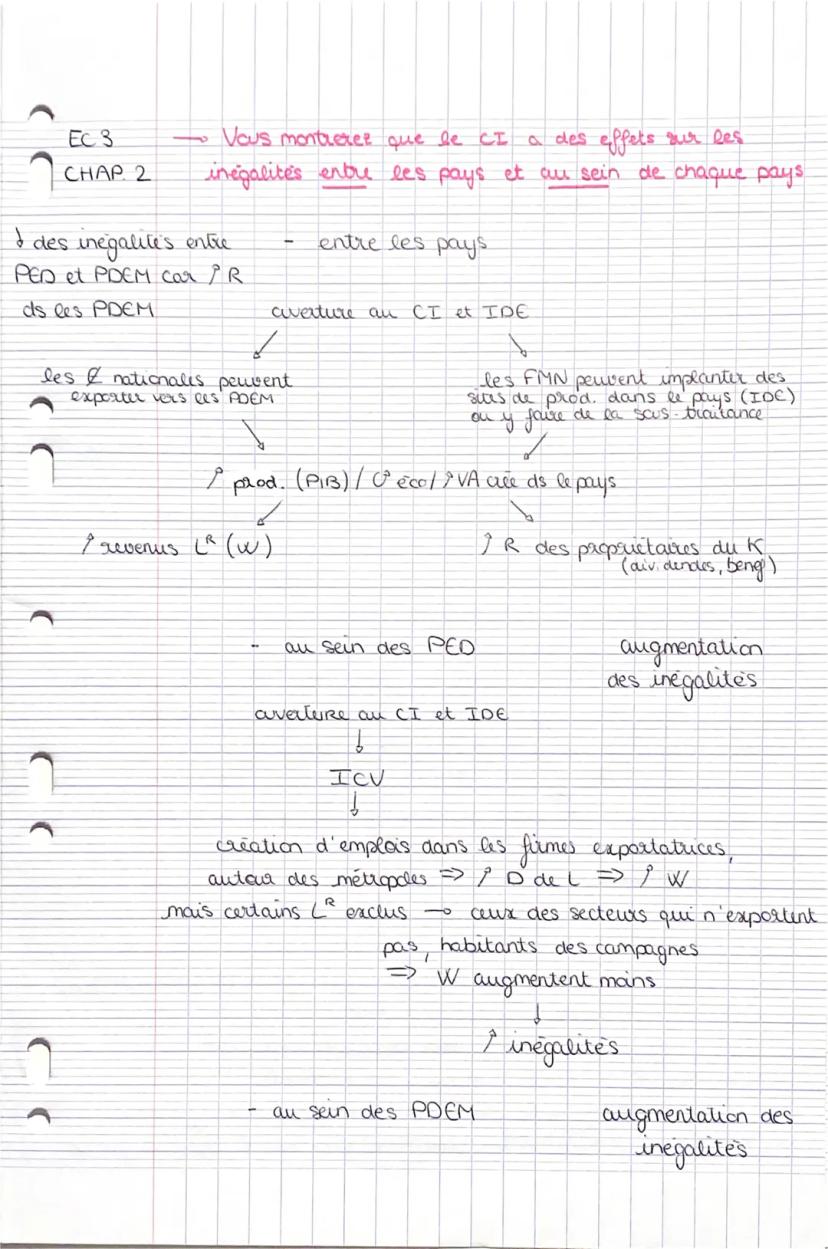 EC 3 → Vous montrerez que le CI a des effets sur les
CHAP. 2 inégalités entre les pays et au sein de chaque pays
↓ des inégalités entre - entre les pays
PED et PDEM car ↑ R
ds les PDEM ouverture au CI et IDE
↙ ↘
les E nationales peuvent les FMN peuvent implanter des
exporter vers les PDEM sites de prod. dans le pays (IDE)
ou y faire de la sous-traitance
↘ ↙
↑ prod. (PIB) / C° éco / ↑ VA créé ds le pays
↙ ↘
↑ revenus Lᴿ (W) ↑ R des propriétaires du K
(dividendes, benef)
- au sein des PED augmentation
des inégalités
ouverture au CI et IDE
↓
ICV
↓
création d'emplois dans les firmes exportatrices,
autour des métropoles ⇒ ↑ D de L ⇒ ↑ W
mais certains Lᴿ exclus → ceux des secteurs qui n'exportent
pas, habitants des campagnes
⇒ W augmentent moins
↓
↑ inégalités
- au sein des PDEM augmentation des
inégalités